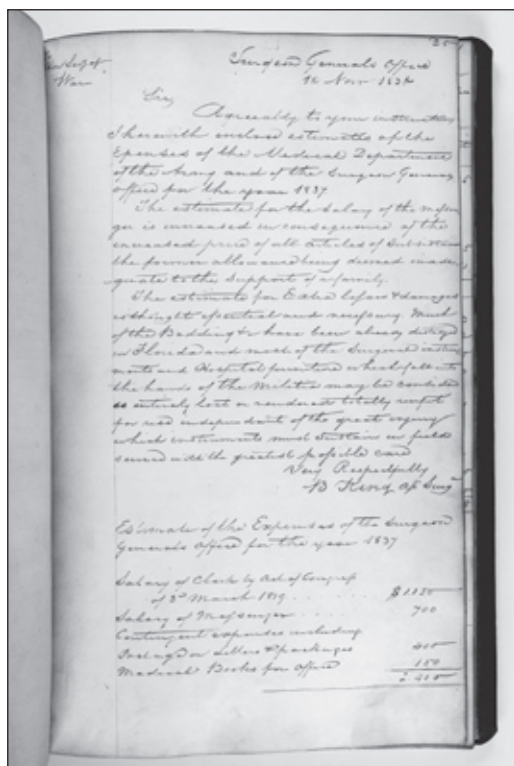 Surgeon Generals Office
Nov 183
Sir
Agreeably to your instructions
I herewith enclose estimates of the
Expenses of the Medical Department
of the Army and of the Surgeon Generals
office for the year 1837
The estimate for the Salary of the Messen
ger is increased in consequence of the
increased price of all articles of Subsistence
the former allowance being deemed inade
quate to the Support of a family.
The estimate for Extra losses & damages
is thought essential and necessary. Much
of the Bedding &c have been already destroyed
in Florida and much of the Surgical instru
ments and Hospital furniture which fall into
the hands of the Militia may be considered
as entirely lost or rendered totally unfit
for use independant of the great injury
which instruments must Sustain in field
service with the greatest possible care
Very Respectfully
B King
Estimate of the Expenses of the Surgeon
Generals Office for the year 1837
Salary of Clerk by Act of Congress
of 3d March 1819 $ 1150
Salary of Messenger 700
Contingent expenses including
Postage on letters & packages 400
Medical Books for office 150